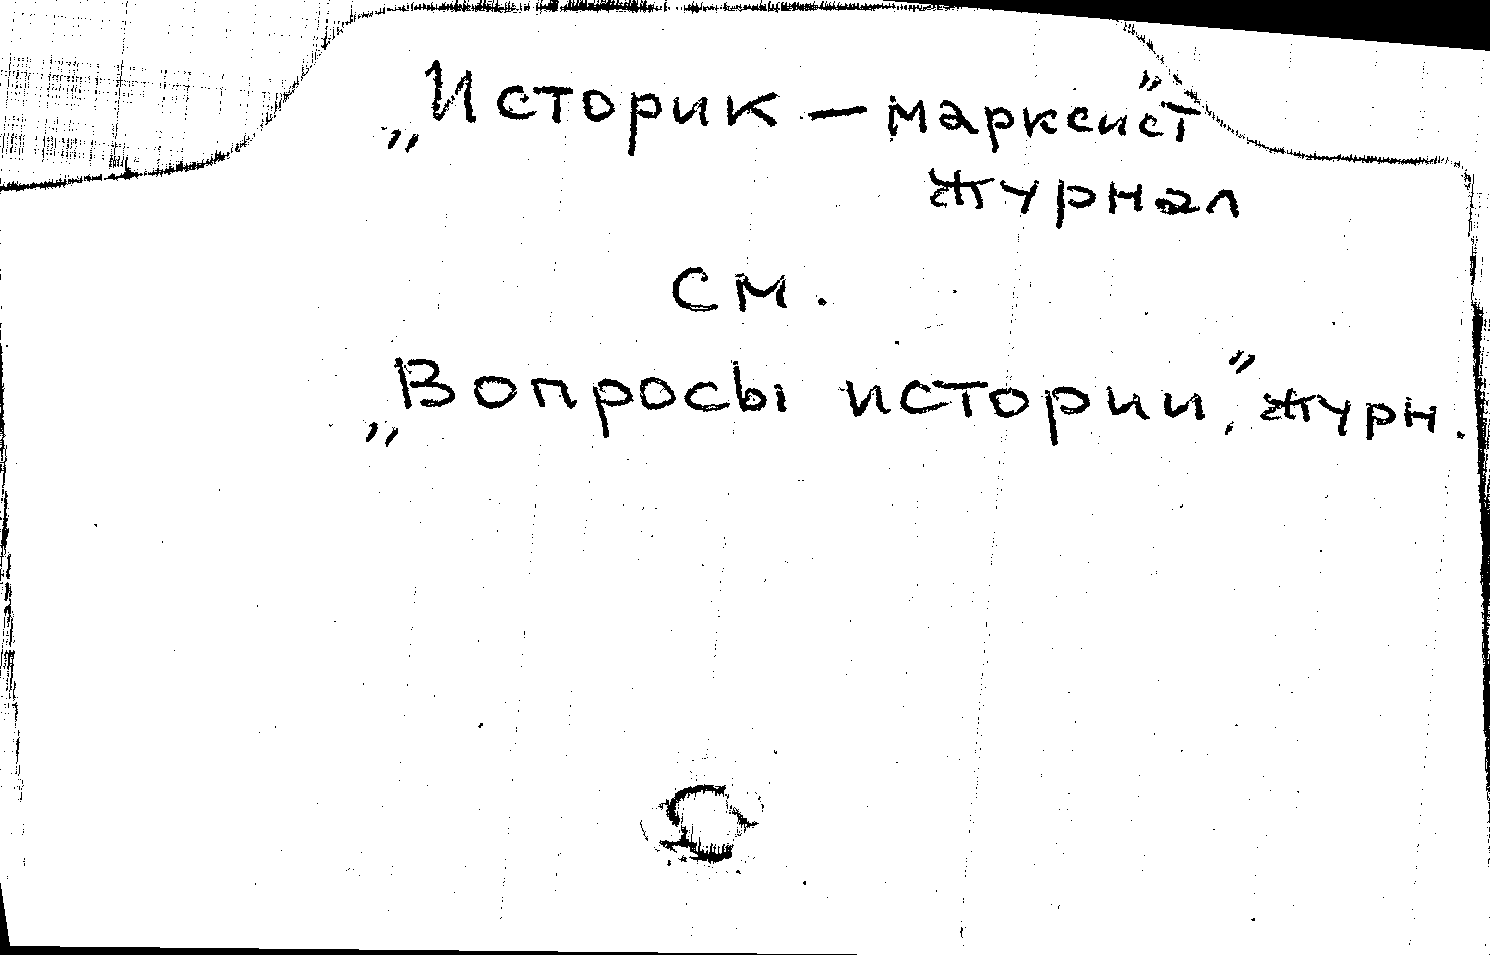 „Историк — марксист”
журнал
см.
„Вопросы истории”, журн.